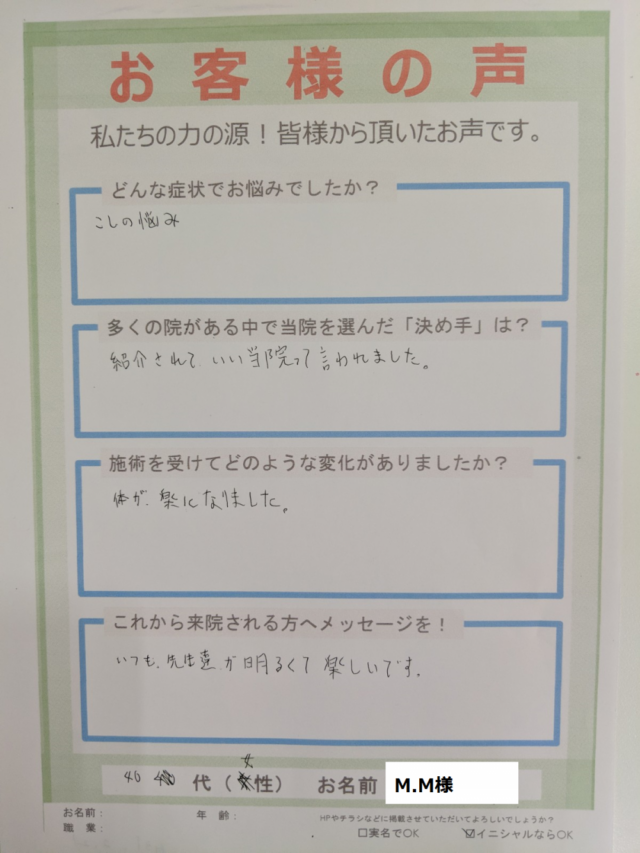 お客様の声
私たちの力の源！皆様から頂いたお声です。
どんな症状でお悩みでしたか？
こしの悩み
多くの院がある中で当院を選んだ「決め手」は？
紹介されて、いい当院って言われました。
施術を受けてどのような変化がありましたか？
体が、楽になりました。
これから来院される方へメッセージを！
いつも、先生達が明るくて楽しいです。
40 代（女性） お名前 M.M様
お名前： 年齢： HPやチラシなどに掲載させていただいてよろしいでしょうか？
職業： □実名でOK ☑イニシャルならOK